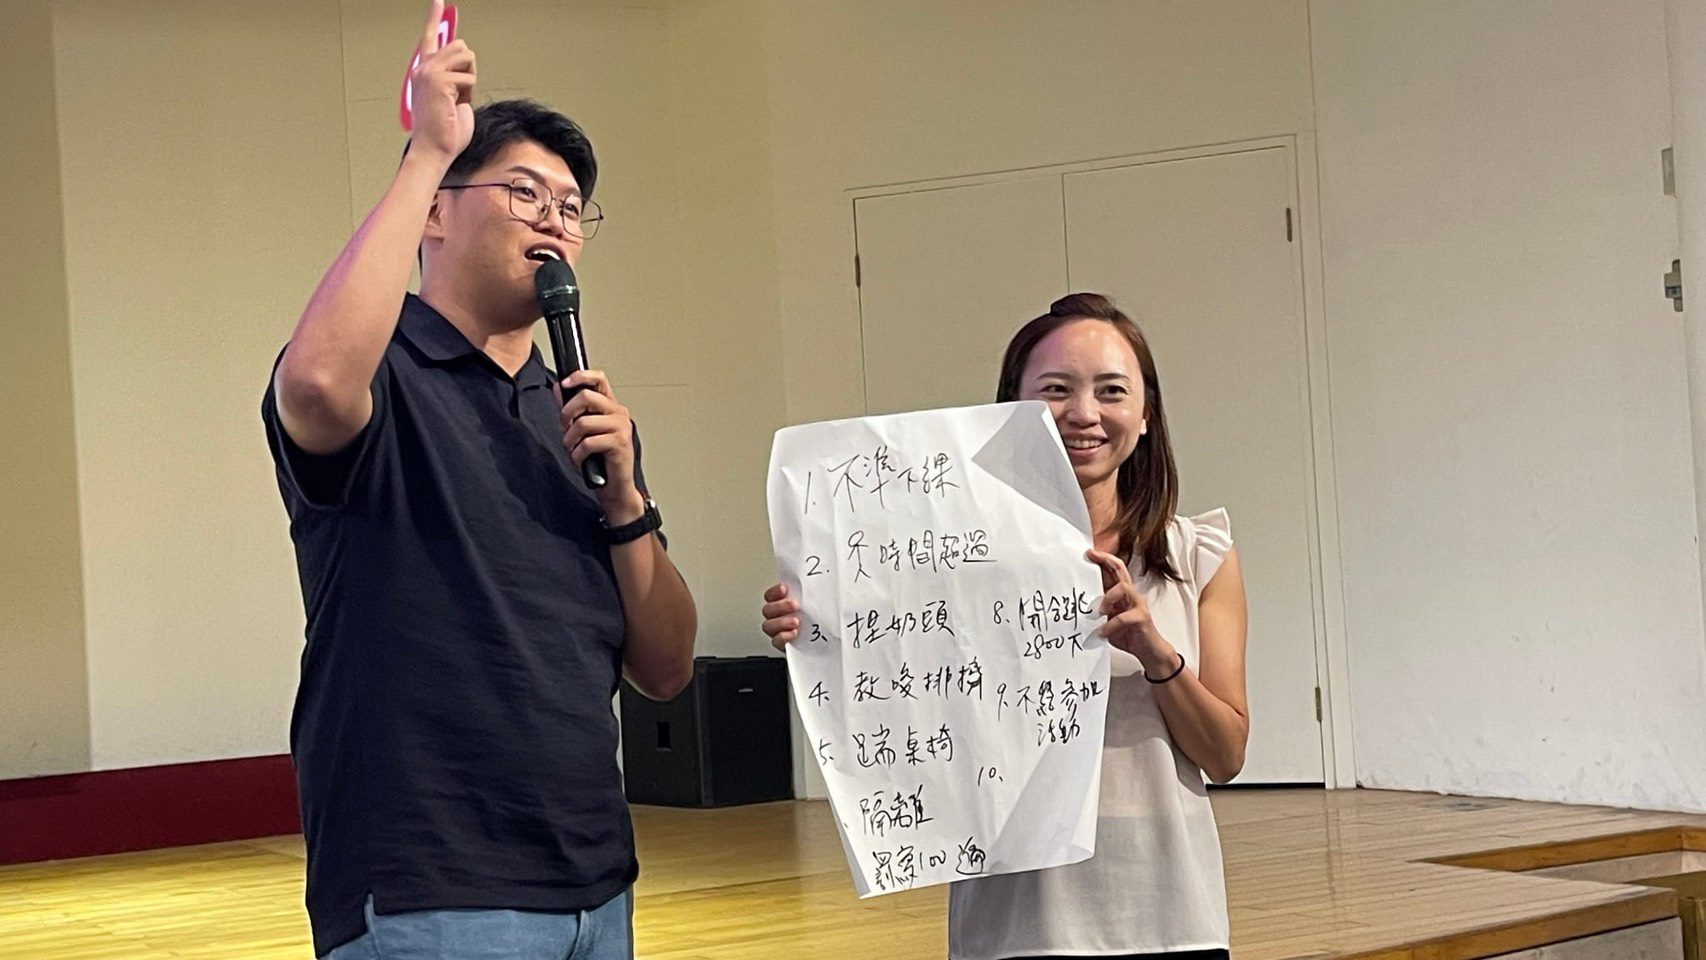 1. 不準下課
2. 哭時間超過
3、捏奶頭
4、教唆排擠
5、踹桌椅
、隔離
罰寫100遍
8. 開除
2800大
9、不給參加
活動
10、